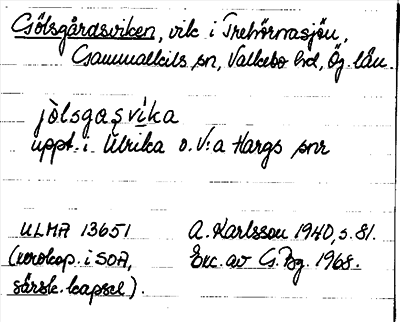 Gölsgårdsviken, vik i Trehörnasjön,
Gammalkils sn, Valkebo hd, Ög. län.
jòlsgaṣvika
uppt. i Ulrika o. V:a Hargs snr
ULMA 13651 A. Karlsson 1940, s. 81.
(xerokop. i SOA, Exc. av G. Bg. 1968.
särsk. kapsel).